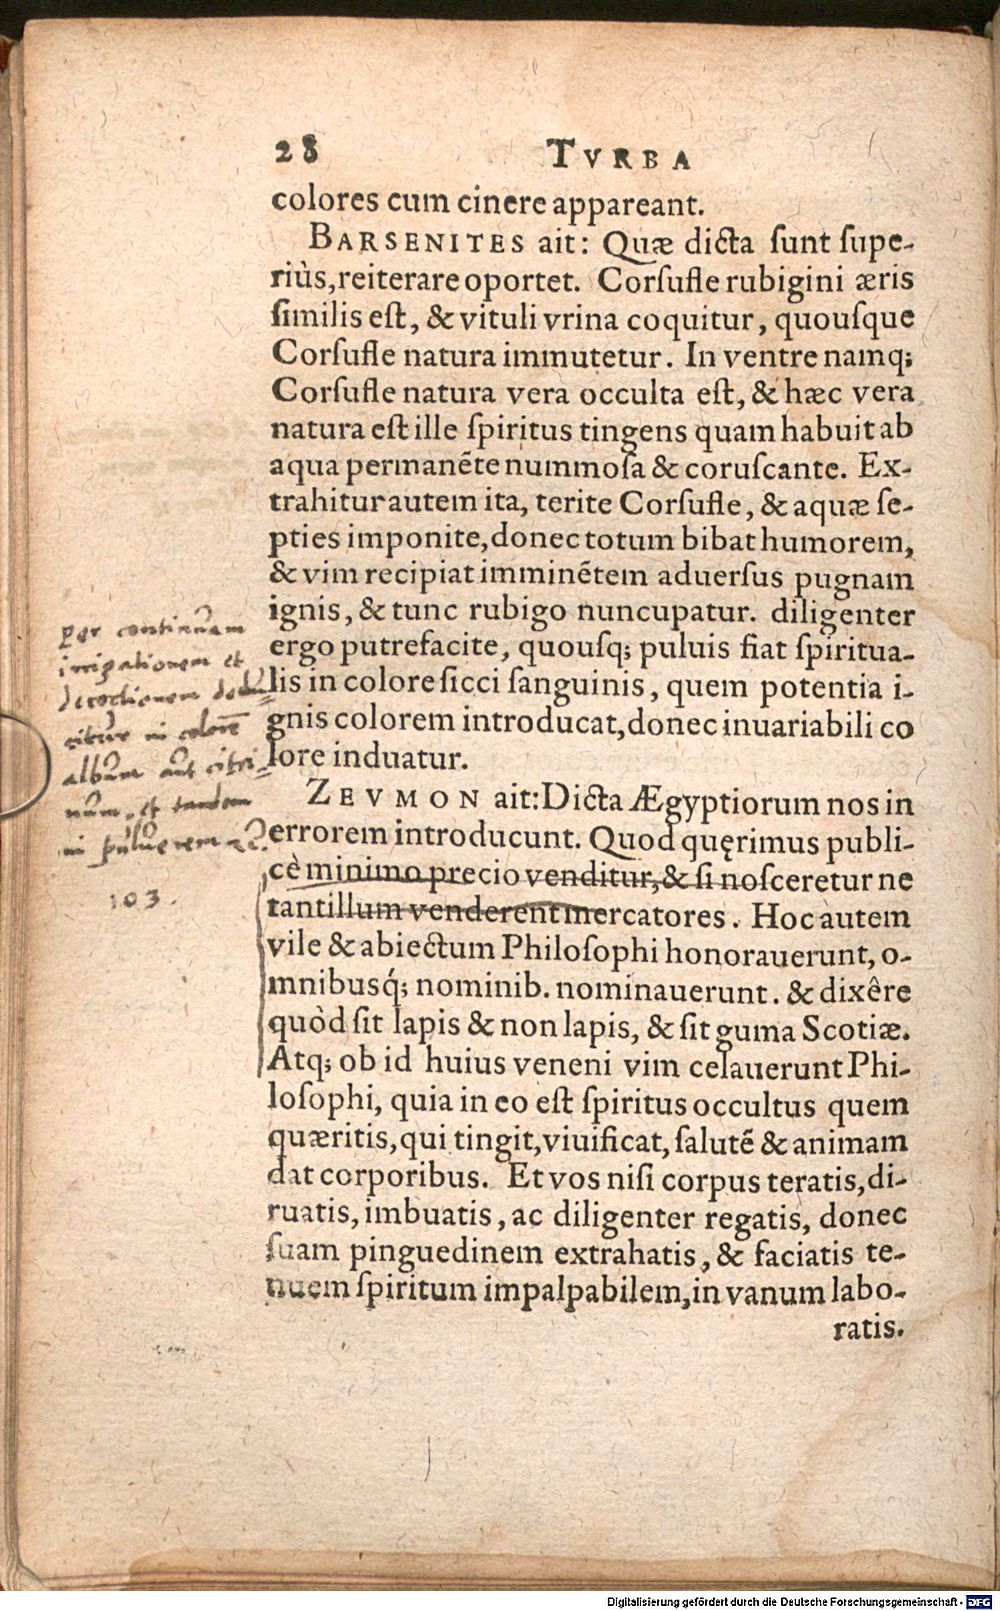 28 TVRBA
colores cum cinere appareant.
BARSENITES ait: Quæ dicta ſunt ſupe-
riùs, reiterare oportet. Corſufle rubigini æris
ſimilis eſt, & vituli vrina coquitur, quouſque
Corſufle natura immutetur. In ventre namq;
Corſufle natura vera occulta eſt, & hæc vera
natura eſt ille ſpiritus tingens quam habuit ab
aqua permanēte nummoſa & coruſcante. Ex-
trahitur autem ita, terite Corſufle, & aquæ ſe-
pties imponite, donec totum bibat humorem,
& vim recipiat imminētem aduerſus pugnam
ignis, & tunc rubigo nuncupatur. diligenter
ergo putrefacite, quouſq; puluis fiat ſpiritua-
lis in colore ſicci ſanguinis, quem potentia i-
gnis colorem introducat, donec inuariabili co
lore induatur.
ZEVMON ait: Dicta Ægyptiorum nos in
errorem introducunt. Quod quęrimus publi-
cè minimo precio venditur, & ſi noſceretur ne
tantillum venderent mercatores. Hoc autem
vile & abiectum Philoſophi honorauerunt, o-
mnibusq́; nominib. nominauerunt. & dixêre
quòd ſit lapis & non lapis, & ſit guma Scotiæ.
Atq; ob id huius veneni vim celauerunt Phi-
loſophi, quia in eo eſt ſpiritus occultus quem
quæritis, qui tingit, viuificat, ſalutē & animam
dat corporibus. Et vos niſi corpus teratis, di-
ruatis, imbuatis, ac diligenter regatis, donec
ſuam pinguedinem extrahatis, & faciatis te-
nuem ſpiritum impalpabilem, in vanum labo-
ratis.
per continuam
irrigationem et
decoctionem dedu
citur in colorē
album aut citri-
num, et tandem
in puluerem
103.
Digitalisierung gefördert durch die Deutsche Forschungsgemeinschaft - DFG